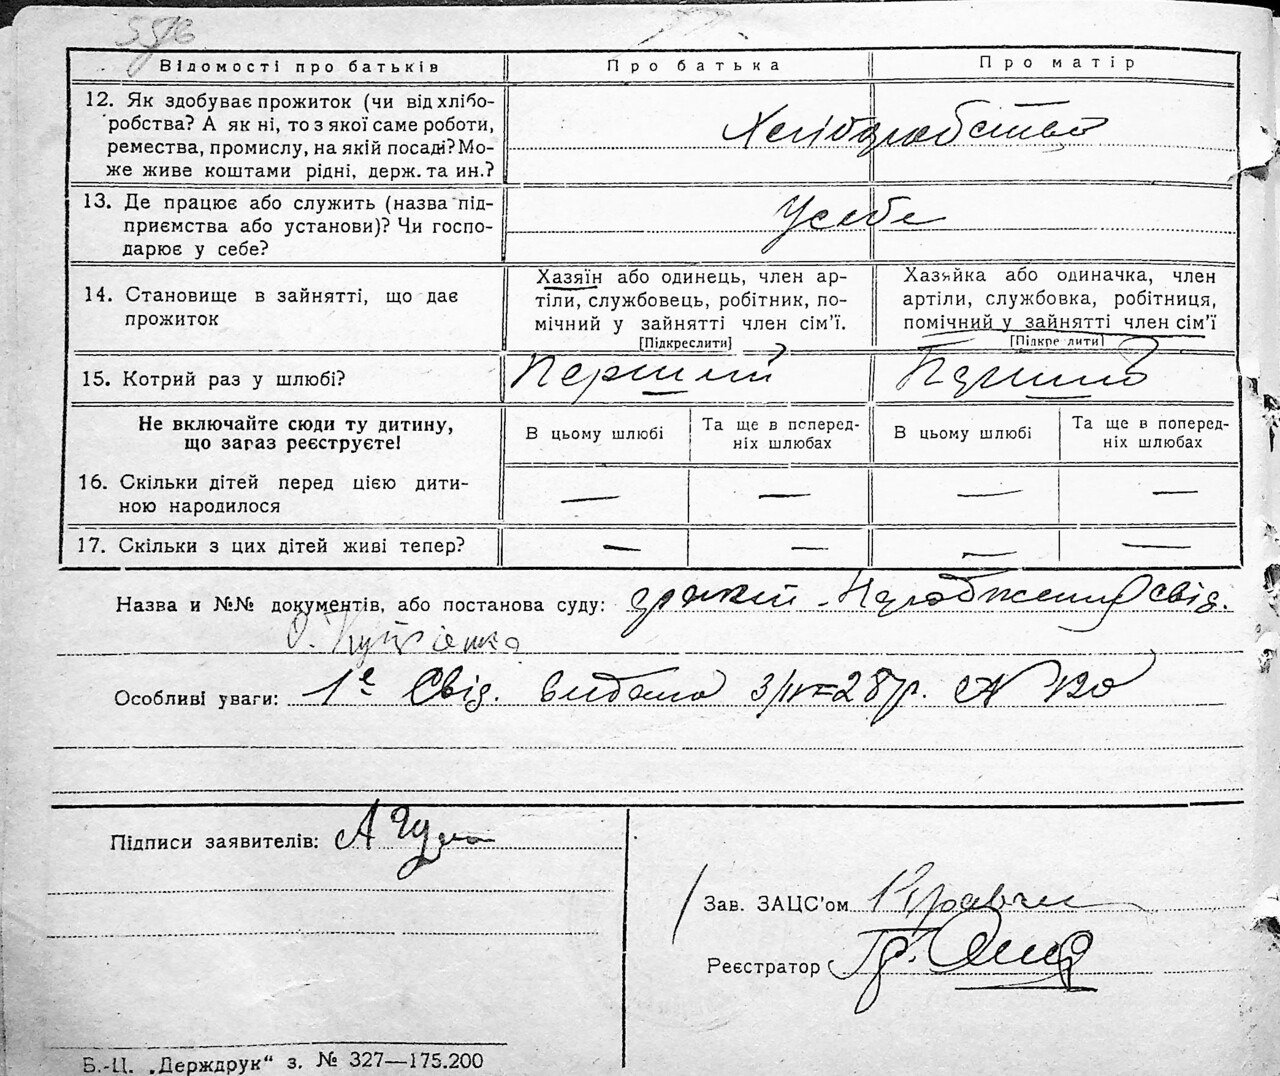 556
Відомості про батьків
Про батька
Про матір
12. Як здобуває прожиток (чи від хлібо-
робства? А як ні, то з якої саме роботи,
ремества, промислу, на якій посаді? Мо-
же живе коштами рідні, держ. та ин.?
Хліборобство
13. Де працює або служить (назва під-
приємства або установи)? Чи госпо-
дарює у себе?
У себе
14. Становище в зайнятті, що дає
прожиток
Хазяїн або одинець, член ар-
тіли, службовець, робітник, по-
мічний у зайнятті член сім'ї.
[Підкреслити]
Хазяйка або одиначка, член
артіли, службовка, робітниця,
помічний у зайнятті член сім'ї
[Підкре лити]
15. Котрий раз у шлюбі?
Перший
Не включайте сюди ту дитину,
що загаз реєструєте!
В цьому шлюбі
Та ще в поперед-
ніх шлюбах
В цьому шлюбі
Та ще в поперед-
ніх шлюбах
16. Скільки дітей перед цією дити-
ною народилося
— — — —
17. Скільки з цих дітей живі тепер?
— — — —
Назва и №№ документів, або постанова суду: свід.
Особливі уваги: 1е Свід. видано 3/IV=28р. № 120
Підписи заявителів: А
Зав. ЗАЦС'ом
Реєстратор
Б.-Ц. „Держдрук“ з. № 327—175.200